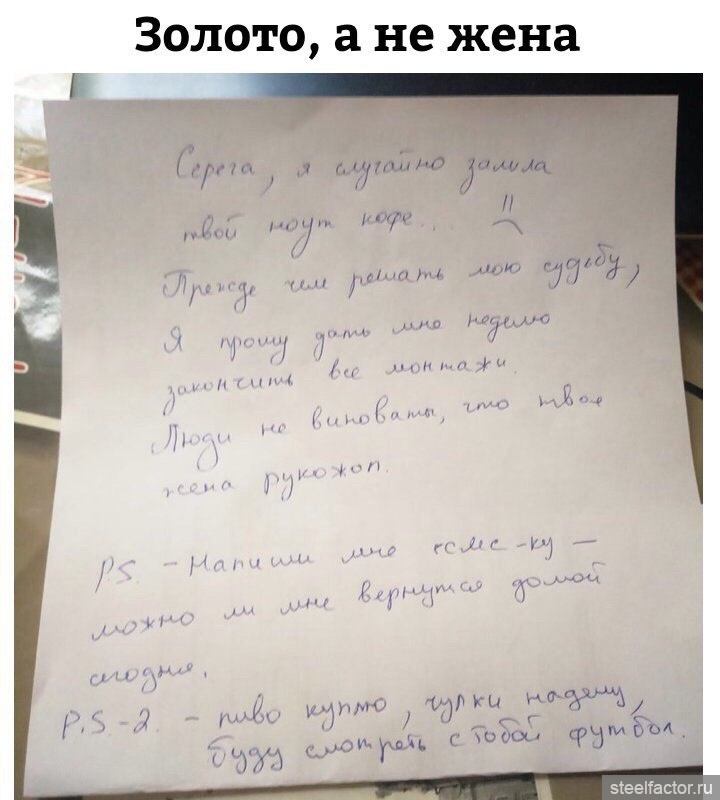 Золото, а не жена
Серега, я случайно залила
твой ноут кофе..
Прежде чем решать мою судьбу,
Я прошу дать мне неделю
закончить все монтажи.
Люди не виноваты, что твоя
жена рукожоп.
P.S. - Напиши мне смс-ку -
можно ли мне вернутся домой
сегодня.
P.S.-2. - пиво куплю, чулки надену,
буду смотреть с тобой футбол.
steelfactor.ru